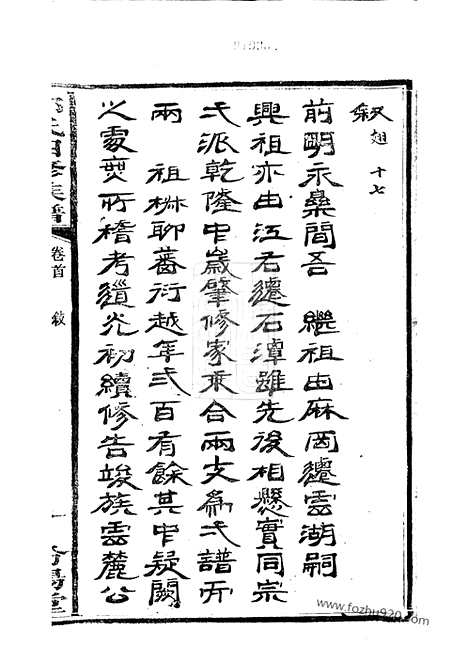 敘
翅 十七
前明永樂間吾 繼祖由麻岡遷雲湖嗣
興祖亦由江右遷石潭雖先後相懸實同宗
弌派乾隆中歲肇修家乘合兩支為弌譜所
兩 祖楙聊蕃衍越年弍百有餘其中疑闕
之處莫可稽考道光初續修告竣族雲麓公
氏四修族譜
卷首 敘
一
www.fozhu920.com